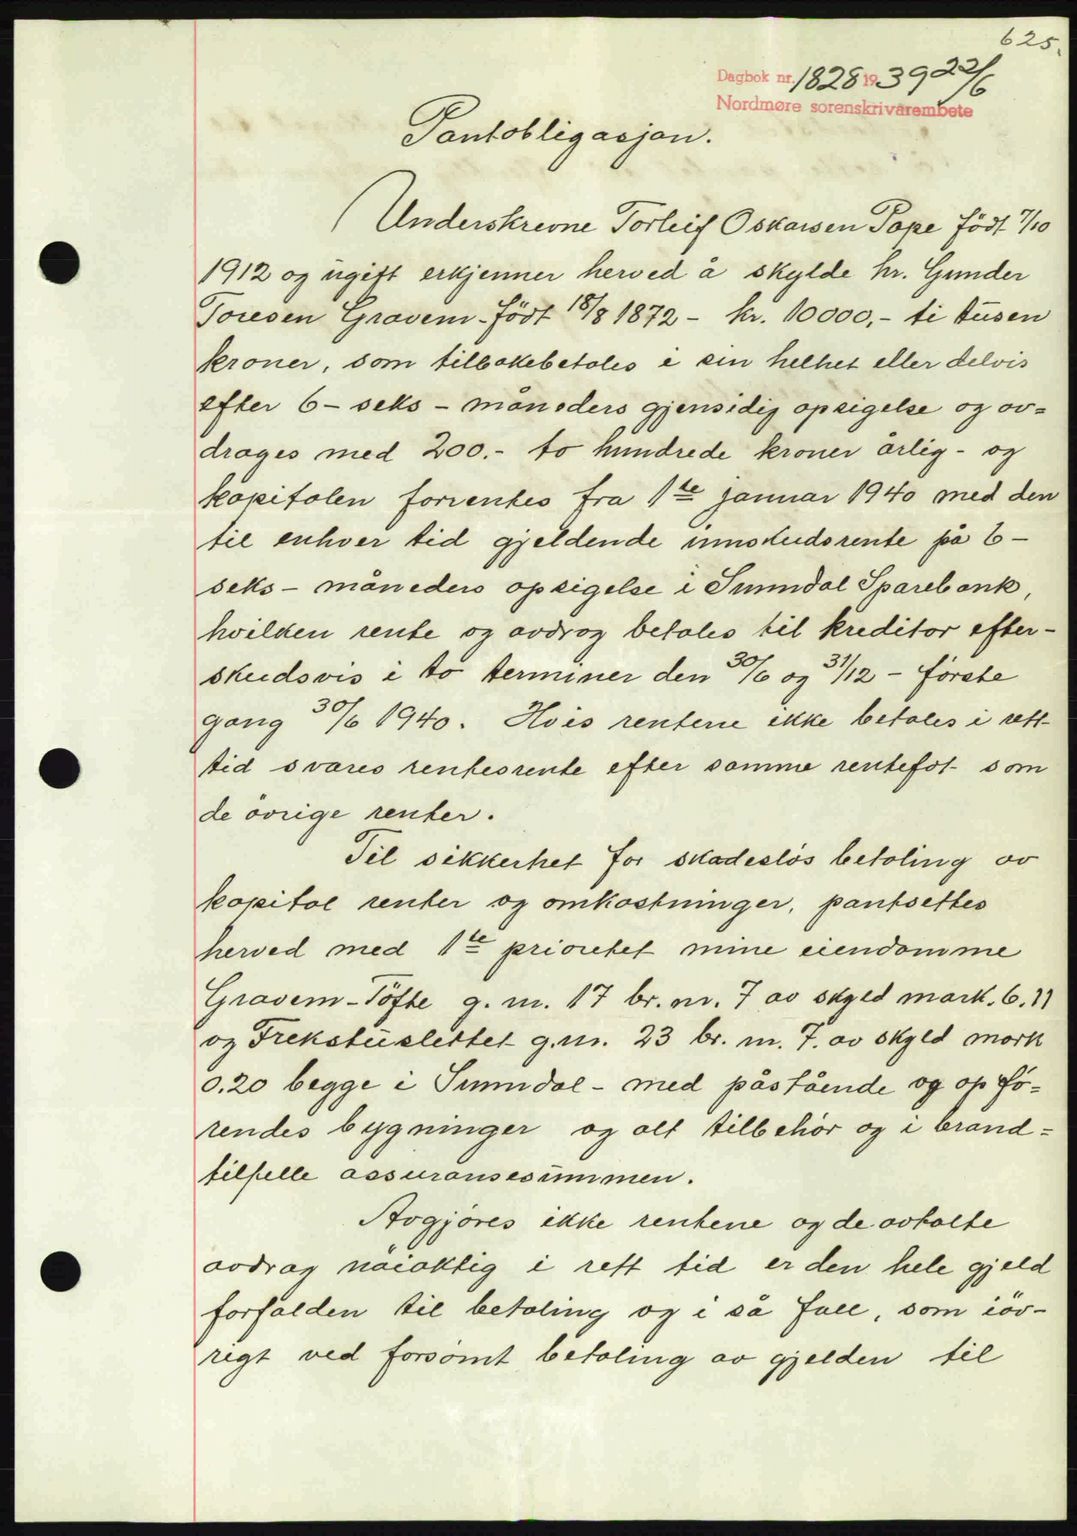 625.
Dagbok nr. 1828 1939 22/6
Nordmøre sorenskriverembete
Pantobligasjon.
Underskrevne Torleif Oskarsen Pape født 7/10
1912 og ugift erkjenner herved å skylde hr. Gunder
Toresen Gravem - født 18/8 1872 - kr. 10000,- ti tusen
kroner, som tilbakebetales i sin helhet eller delvis
efter 6 - seks - måneders gjensidig opsigelse og av=
drages med 200.- to hundrede kroner årlig - og
kapitalen forrentes fra 1ste januar 1940 med den
til enhver tid gjeldende innskudsrente på 6 -
seks - måneders opsigelse i Sunndal Sparebank,
hvilken rente og avdrag betales til kreditor efter-
skudsvis i to terminer den 30/6 og 31/12 - første
gang 30/6 1940. Hvis rentene ikke betales i rett
tid svares rentesrente efter samme rentefot som
de övrige renter.
Til sikkerhet for skadesløs betaling av
kapital renter og omkostninger, pantsettes
herved med 1ste prioretet mine eiendomme
Gravem - Töfte g. nr. 17 br. nr. 7 av skyld mark. 6.11
og Frekstuslettet g.nr. 23 br. nr. 7. av skyld mark
0.20 begge i Sunndal - med påstående og opfø=
rendes bygninger og alt tilbehör og i brand=
tilfelle assuransesummen.
Avgjøres ikke rentene og de avtalte
avdrag nöiaktig i rett tid er den hele gjeld
forfalden til betaling og i så fall, som iöv-
rigt ved forsømt betaling av gjelden til